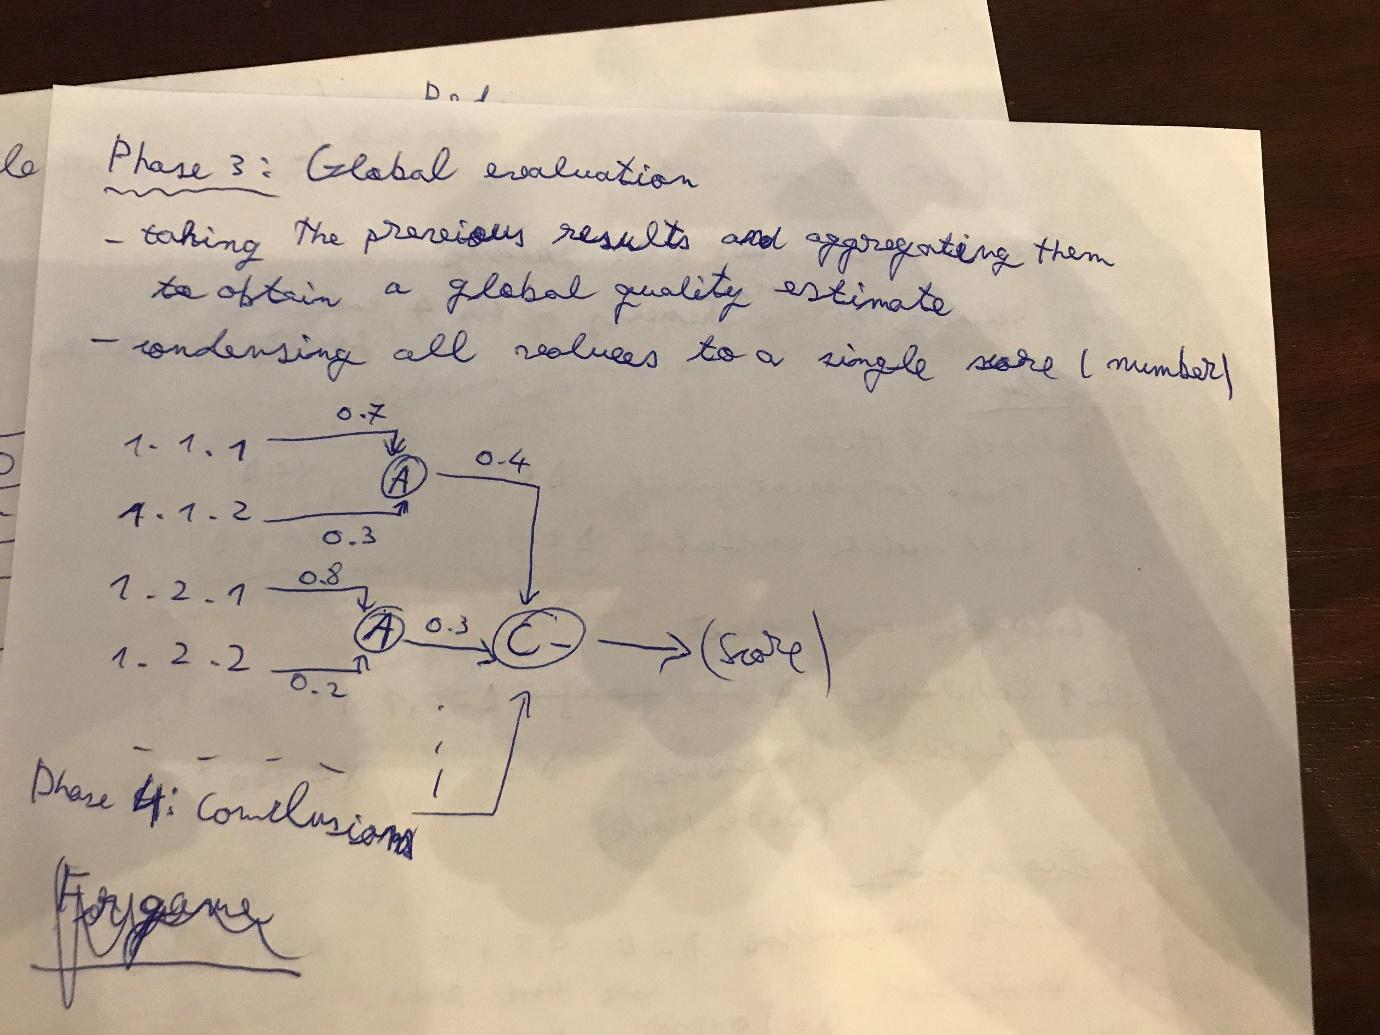 le
Phase 3: Global evaluation
- taking the previous results and aggregating them
to obtain a global quality estimate
- condensing all values to a single score (number)
0.7
1.1.1
A
0.4
1.1.2
0.3
0.8
1.2.1
A
0.3
C-
(Score)
1.2.2
0.2
Phase 4: Conclusions